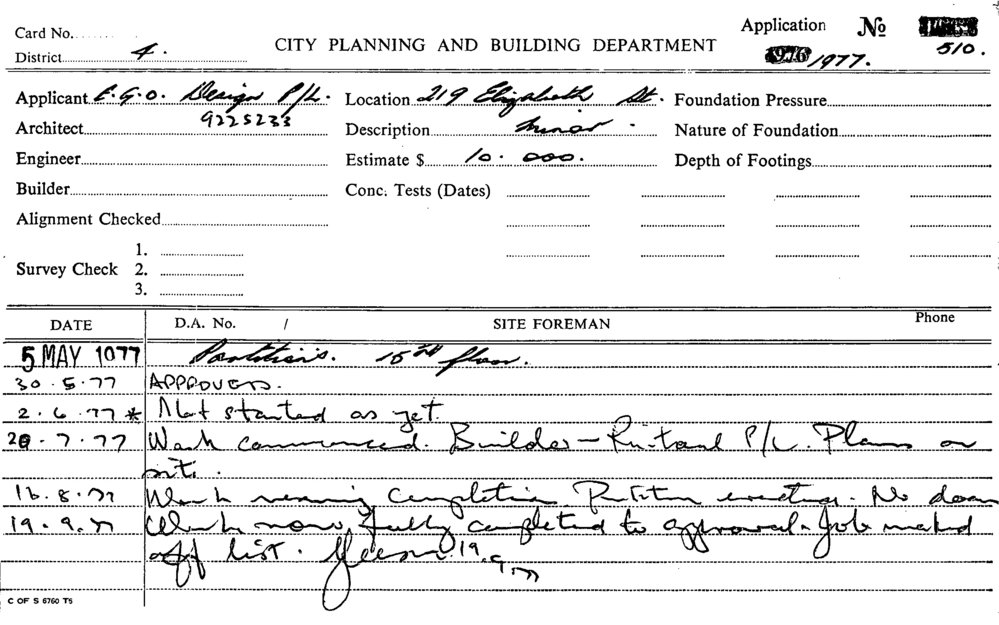 Card No.
Application No
District 4. CITY PLANNING AND BUILDING DEPARTMENT 976/1977. 510.
Applicant E.G.O. Design P/L. Location 219 Elizabeth St. Foundation Pressure
9225233
Architect Description Minor. Nature of Foundation
Engineer Estimate $ 10.000. Depth of Footings
Builder Conc. Tests (Dates)
Alignment Checked
1.
Survey Check 2.
3.
DATE D.A. No. / SITE FOREMAN Phone
5 MAY 1977 Partitions. 15th floor.
30.5.77 APPROVED.
2.6.77 * Not started as yet.
28.7.77 Work commenced. Builder - P/L. Plans on
site.
16.8.77 Work nearing completion Partition erecting. No doors
19.9.77 Work now fully completed to approval. Job marked
off list. 19.9.77
C OF S 6760 TS